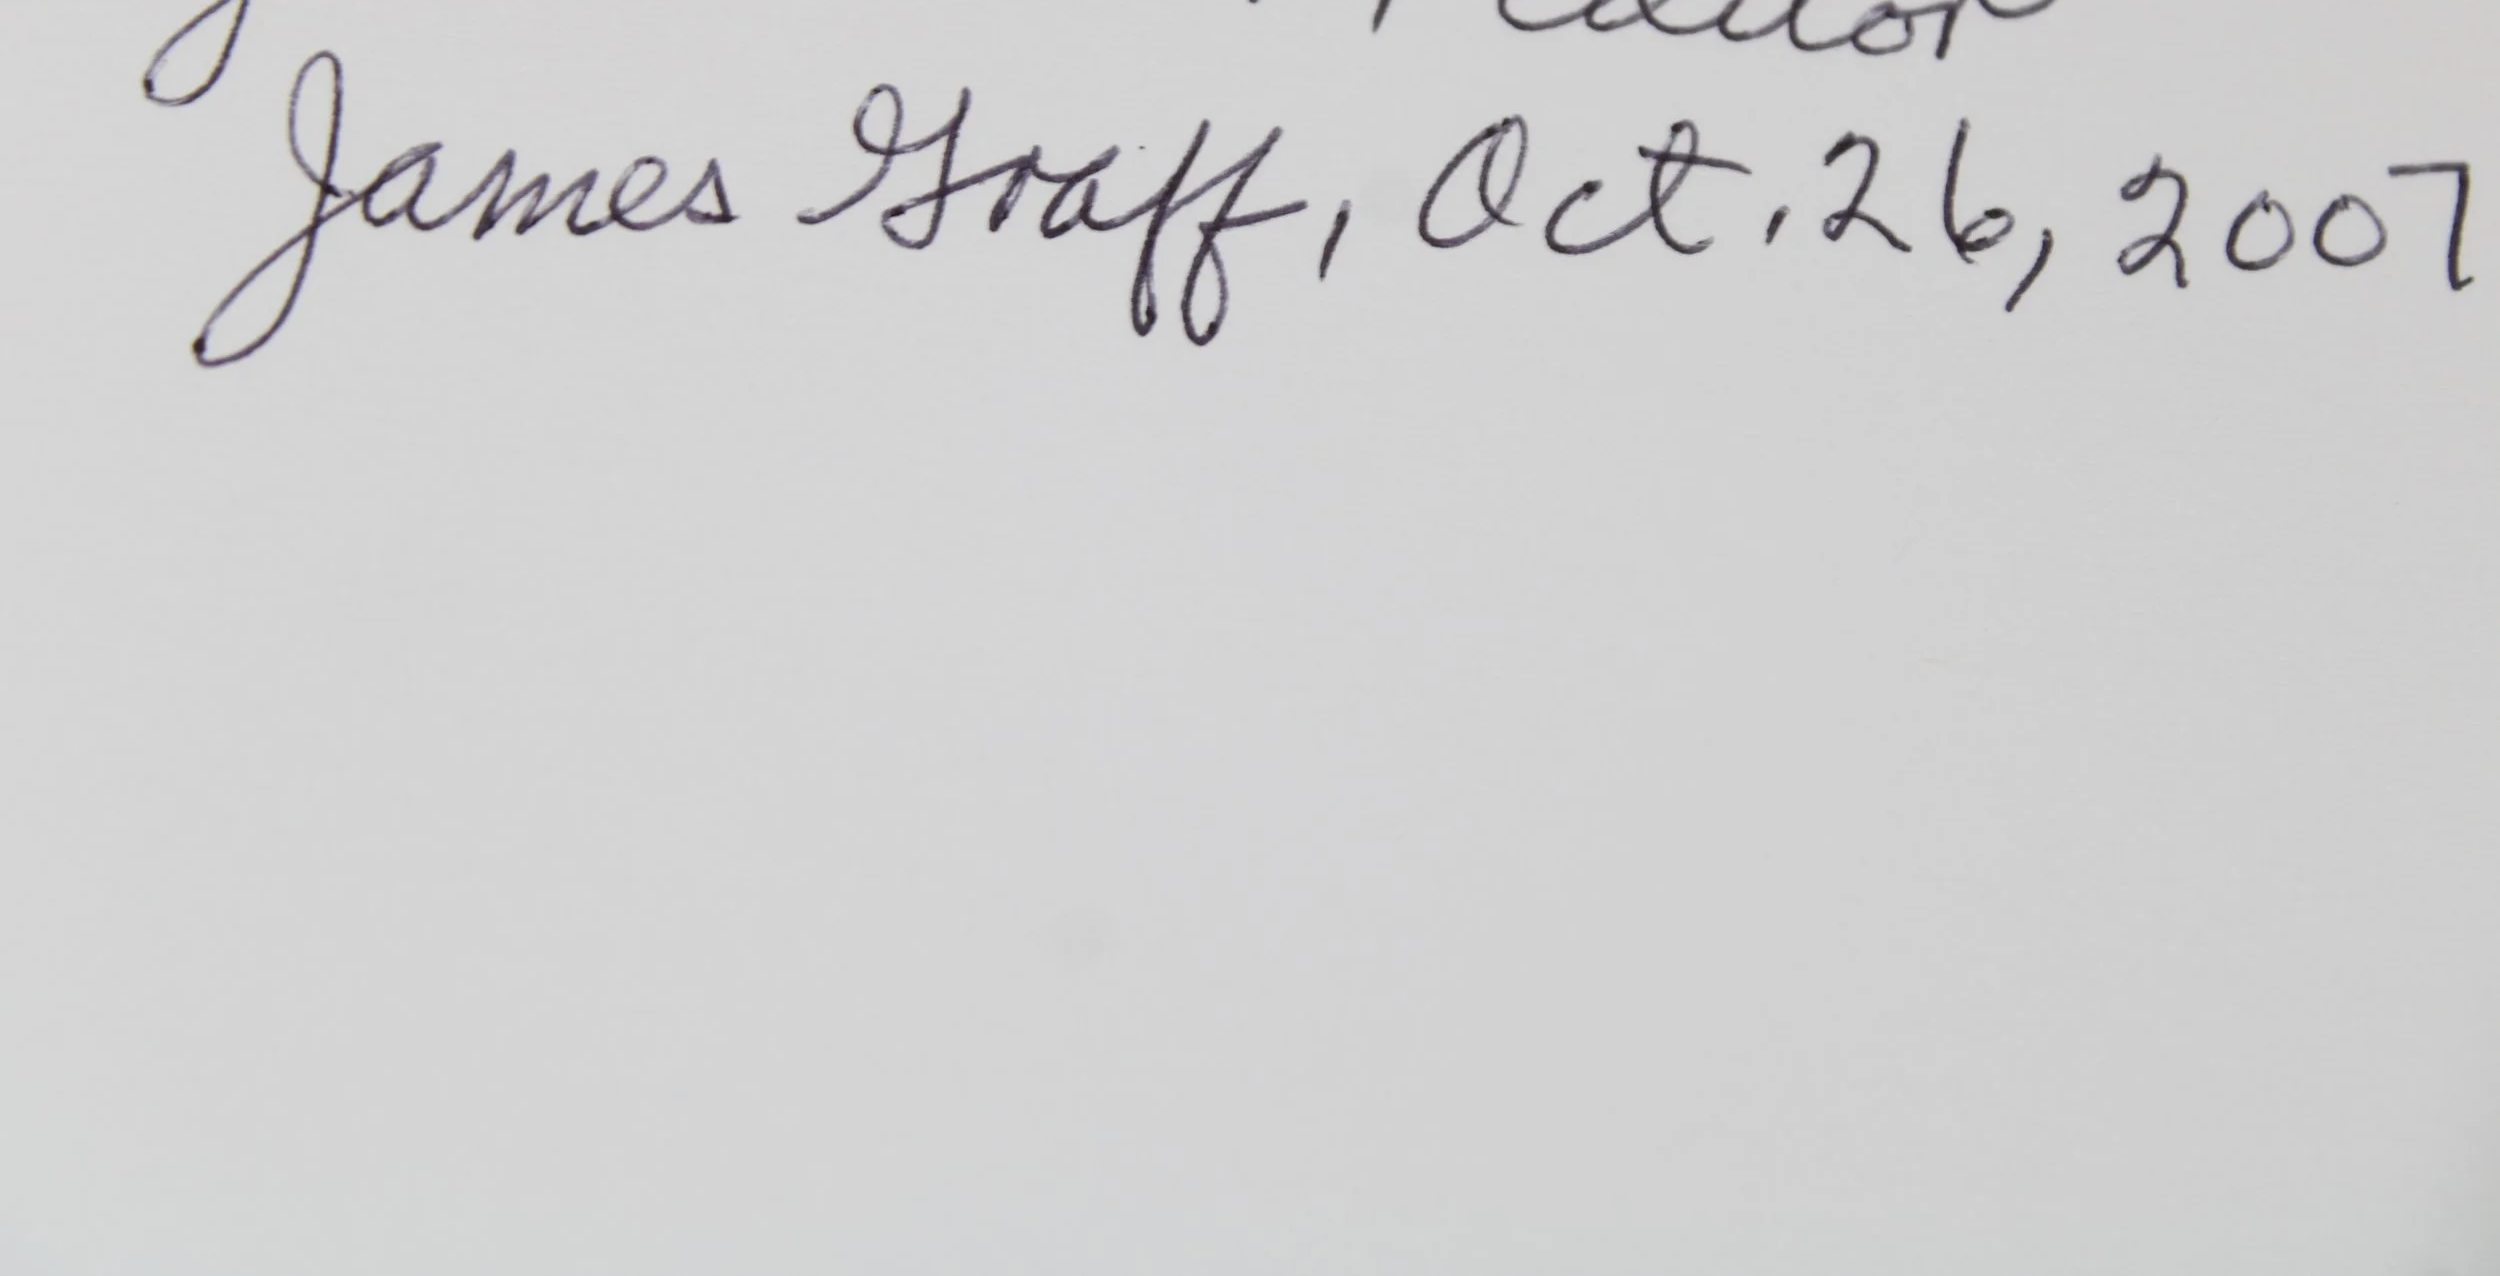 James Graff, Oct. 26, 2007